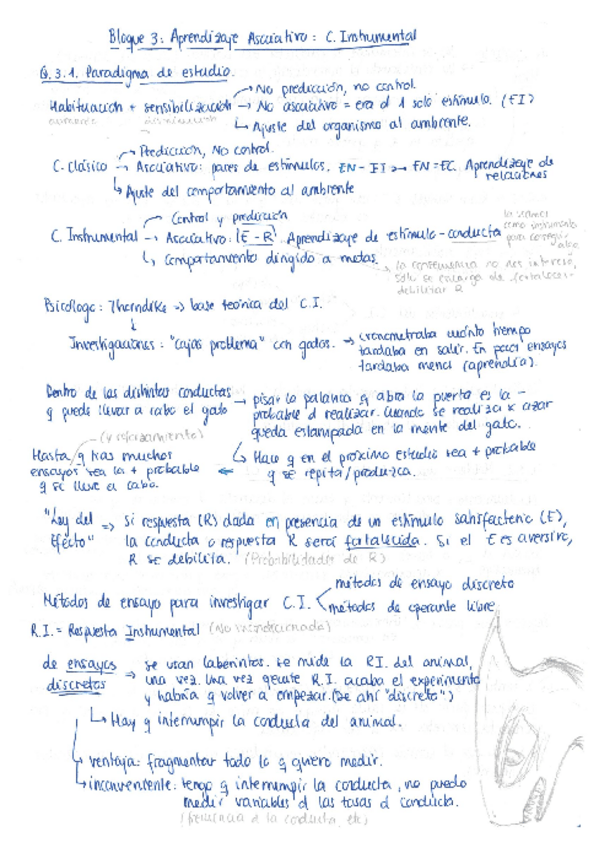 Bloque 3: Aprendizaje Asociativo: C. Instrumental
Q.3.1. Paradigma de estudio.
→ No predicción, no control.
Habituación + sensibilización → No asociativo = era d 1 solo estímulo. (EI)
↳ Ajuste del organismo al ambiente.
→ Predicción, No control.
C. Clásico → Asociativo: pares de estímulos. EN - EI → EN = EC. Aprendizaje de relaciones
↳ Ajuste del comportamiento al ambiente
Control y predicción
C. Instrumental → Asociativo: (E - R). Aprendizaje de estímulo - conducta
↳ Comportamiento dirigido a metas
la vemos como instrumento para conseguir algo
la consecuencia no nos interesó, solo se encarga de fortalecer - debilitar R
Psicólogo: Thorndike => base teórica del C.I.
↓
Investigaciones: "cajas problema" con gatos. → cronometraba cuánto tiempo
tardaba en salir. En pocos ensayos
tardaba menos (aprendía).
Dentro de las distintas conductas → pisar la palanca q abra la puerta es la -
q puede llevar a cabo el gato probable d realizar. Cuando se realiza x azar
queda estampada en la mente del gato.
(y reforzamiento)
↳ Hace q en el próximo estudio sea + probable
q se repita/produzca.
Hasta q tras muchos ←
ensayos sea la + probable
q se lleve a cabo.
"Ley del => si respuesta (R) dada en presencia de un estímulo satisfactorio (E),
Efecto" la conducta o respuesta R será fortalecida. Si el E es aversivo,
R se debilita. (Probabilidades de R)
métodos de ensayo discreto
Métodos de ensayo para investigar C.I. < métodos de operante libre
R.I. = Respuesta Instrumental (No incondicionada)
de ensayos → se usan laberintos. se mide la RI. del animal,
discretos una vez. Una vez ejecute R.I. acaba el experimento
y habría q volver a empezar. (De ahí "discreto")
↳ Hay q interrumpir la conducta del animal.
→ ventaja: fragmentar todo lo q quiero medir.
↳ inconveniente: tengo q interrumpir la conducta, no puedo
medir variables d las tasas d conducta.
(frecuencia d la conducta, etc)